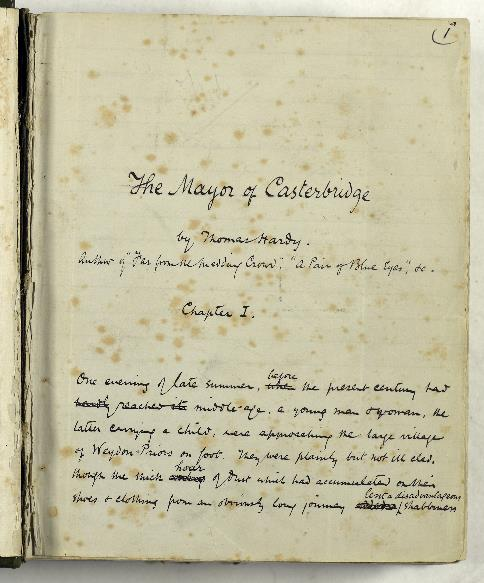 1
The Mayor of Casterbridge
by Thomas Hardy.
Author of "Far from the Madding Crowd", "A Pair of Blue Eyes", &c.
Chapter I.
One evening of late summer, before the present century had
reached its middle-age, a young man & woman, the
latter carrying a child, were approaching the large village
of Weydon-Priors on foot. They were plainly but not ill clad,
though the thick hoar of dust which had accumulated on their
shoes & clothing from an obviously long journey lent a disadvantageous shabbiness